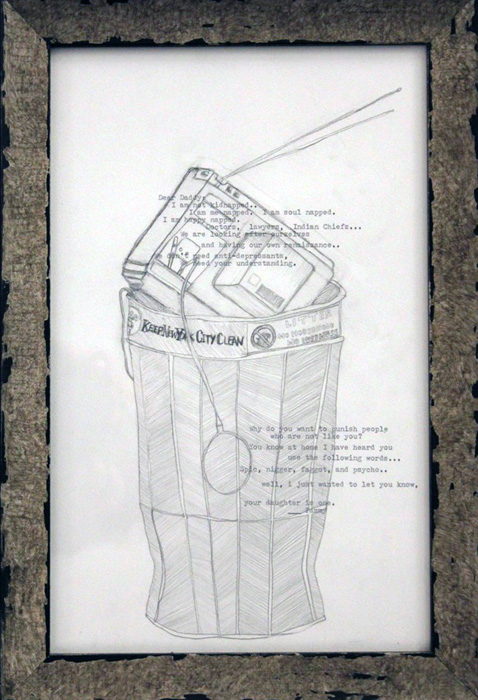 Dear Daddy,
I am not kidnapped..
I am me-napped, I am soul napped.
I am happy napped.
Doctors, lawyers, Indian Chiefs...
We are looking after ourselves
and having our own renaissance..
We don't need anti-depressants,
need your understanding.
KEEP NEW YORK CITY CLEAN
LITTER
NO HOUSEHOLD
NO BUSINESS
Why do you want to punish people
who are not like you?
You know at home I have heard you
use the following words...
Spic, nigger, faggot, and psycho..
well, i just wanted to let you know,
your daughter is one.